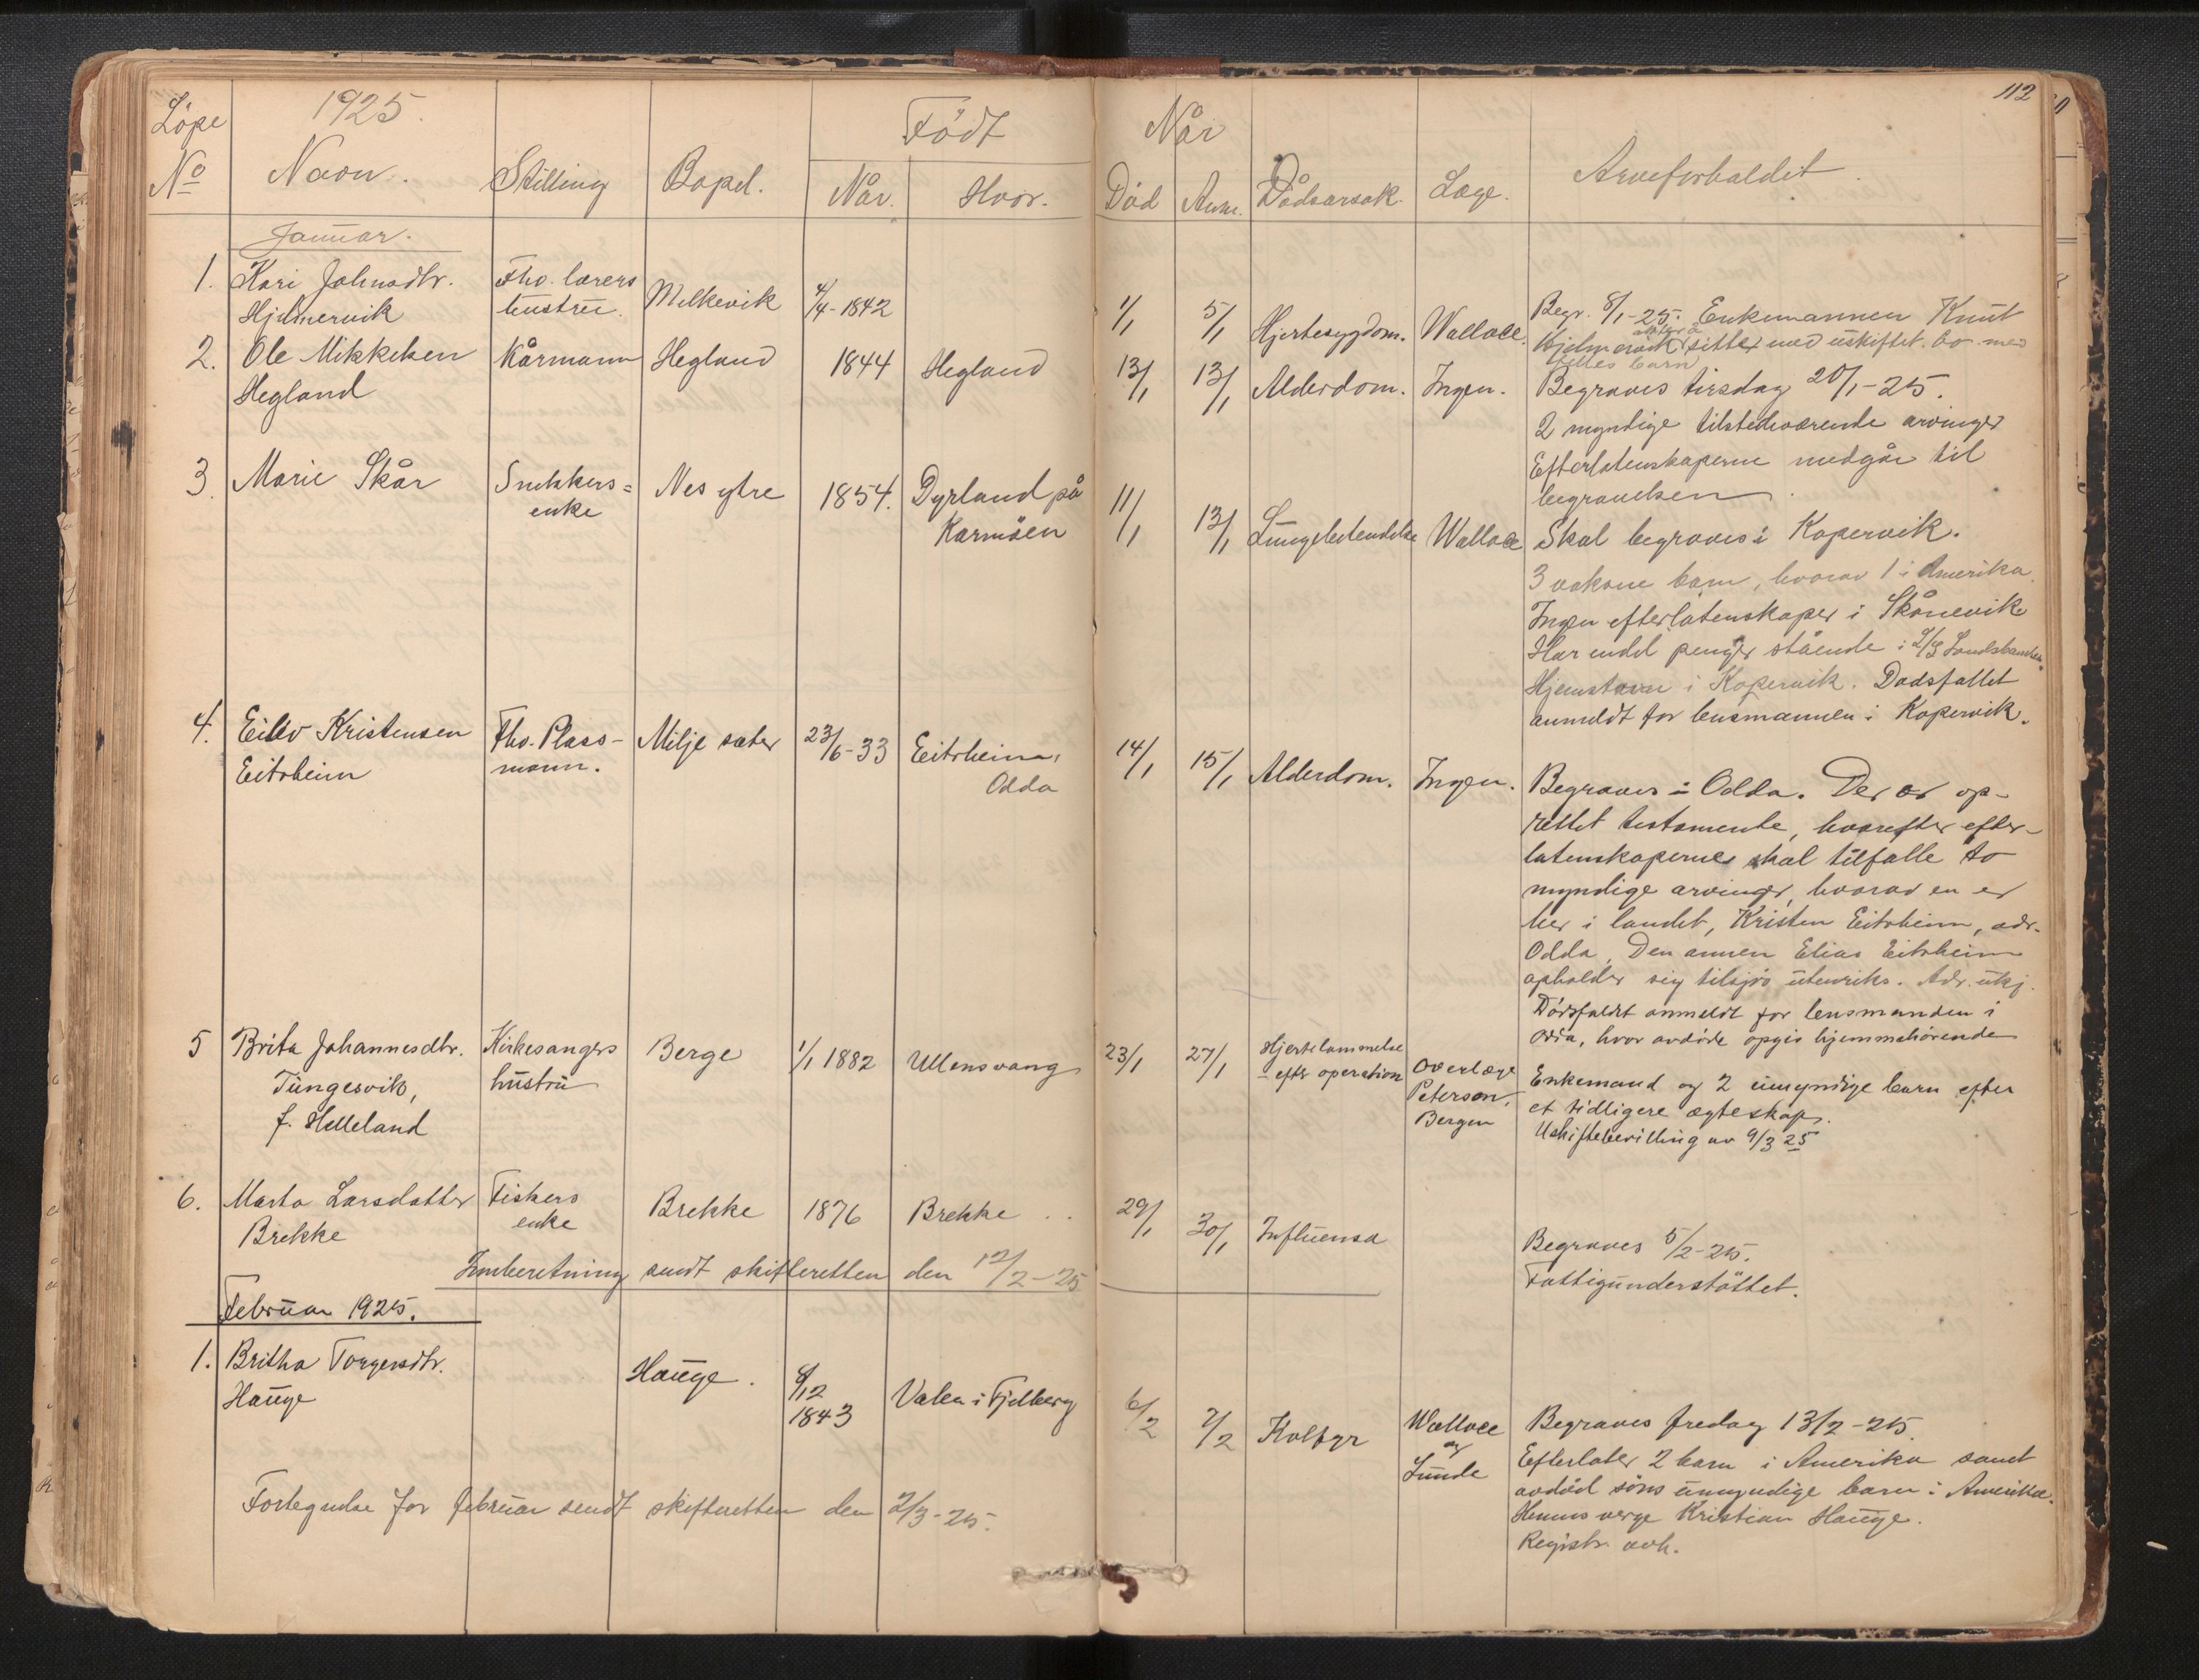 112
Löpe
No
1925.
Navn.
Stilling
Bopel.
Født
Når.
Hvor.
Når
Död
Anm.
Dödsårsak.
Læge.
Arveforholdet.
Januar.
1. Kari Johnsdtr. Hjelmervik
Fhv. lærers hustru.
Milkevik
4/4-1842
1/1
5/1
Hjertesygdom.
Wallace.
Begr. 8/1-25. Enkemannen Knut
Hjelmervik sitter med uskiftet bo med
felles barn
2. Ole Mikkelsen
Hegland
Kårmann
Hegland
1844
Hegland
13/1
13/1
Alderdom.
Ingen.
Begraves tirsdag 20/1-25.
2 myndige tilstedeværende arvinger
Efterlatenskaperne medgår til
begravelsen.
3. Marie Skår
Snekkers=
enke
Nes ytre
1854.
Dyrland på
Karmöen
11/1
13/1
Lungebetendelse
Wallace
Skal begraves i Kopervik.
3 voksne barn, hvorav 1 i Amerika.
Ingen efterlatenskaper i Skånevik
Har endel penger stående i Landsbanken.
Hjemstavn i Kopervik. Dødsfallet
anmeldt for lensmannen i Kopervik.
4. Eiliv Kristensen
Eitrheim
Fhv. Plass-
mann.
Milje sæter
23/6-33
Eitrheim,
Odda
14/1
15/1
Alderdom.
Ingen.
Begraves i Odda. Der er op-
rettet testamente, hvorefter efter-
latenskapernes skal tilfalle to
myndige arvinger, hvorav en er
her i landet, Kristen Eitrheim, adr.
Odda, Den annen Elias Eitrheim
opholder sig tilsjös utenriks. Adr. ukj.
Dödsfaldet anmeldt for lensmanden i
Odda, hvor avdöde opgis hjemmehörende
5 Brita Johannesdtr.
Tungesvik,
f. Helleland
Kirkesangers
hustru
Berge
1/1 1882
Ullensvang
23/1
27/1
Hjertelammelse
efter operation
Overlæge
Peterson,
Bergen
Enkemand og 2 umyndige barn efter
et tidligere ægteskap.
Uskiftebevilling av 9/3 25
6. Marta Larsdatter
Brekke
Fiskers
enke
Brekke
1876
Brekke
29/1
30/1
Influensa
Begraves 5/2-25.
Fattigunderstöttet.
Innberetning sendt skifteretten den 12/2-25
Februar 1925.
1. Britha Torgersdtr.
Hauge
Hauge.
8/12
1843
Valen i Fjelberg
6/2
7/2
Kolfyr
Wallace
og
Lunde
Begraves fredag 13/2-25.
Efterlater 2 barn i Amerika samt
avdöd söns umyndige barn i Amerika.
Hennes verge Kristian Hauge.
Registr. avh.
Fortegnelse for februar sendt skifteretten den 2/3-25.